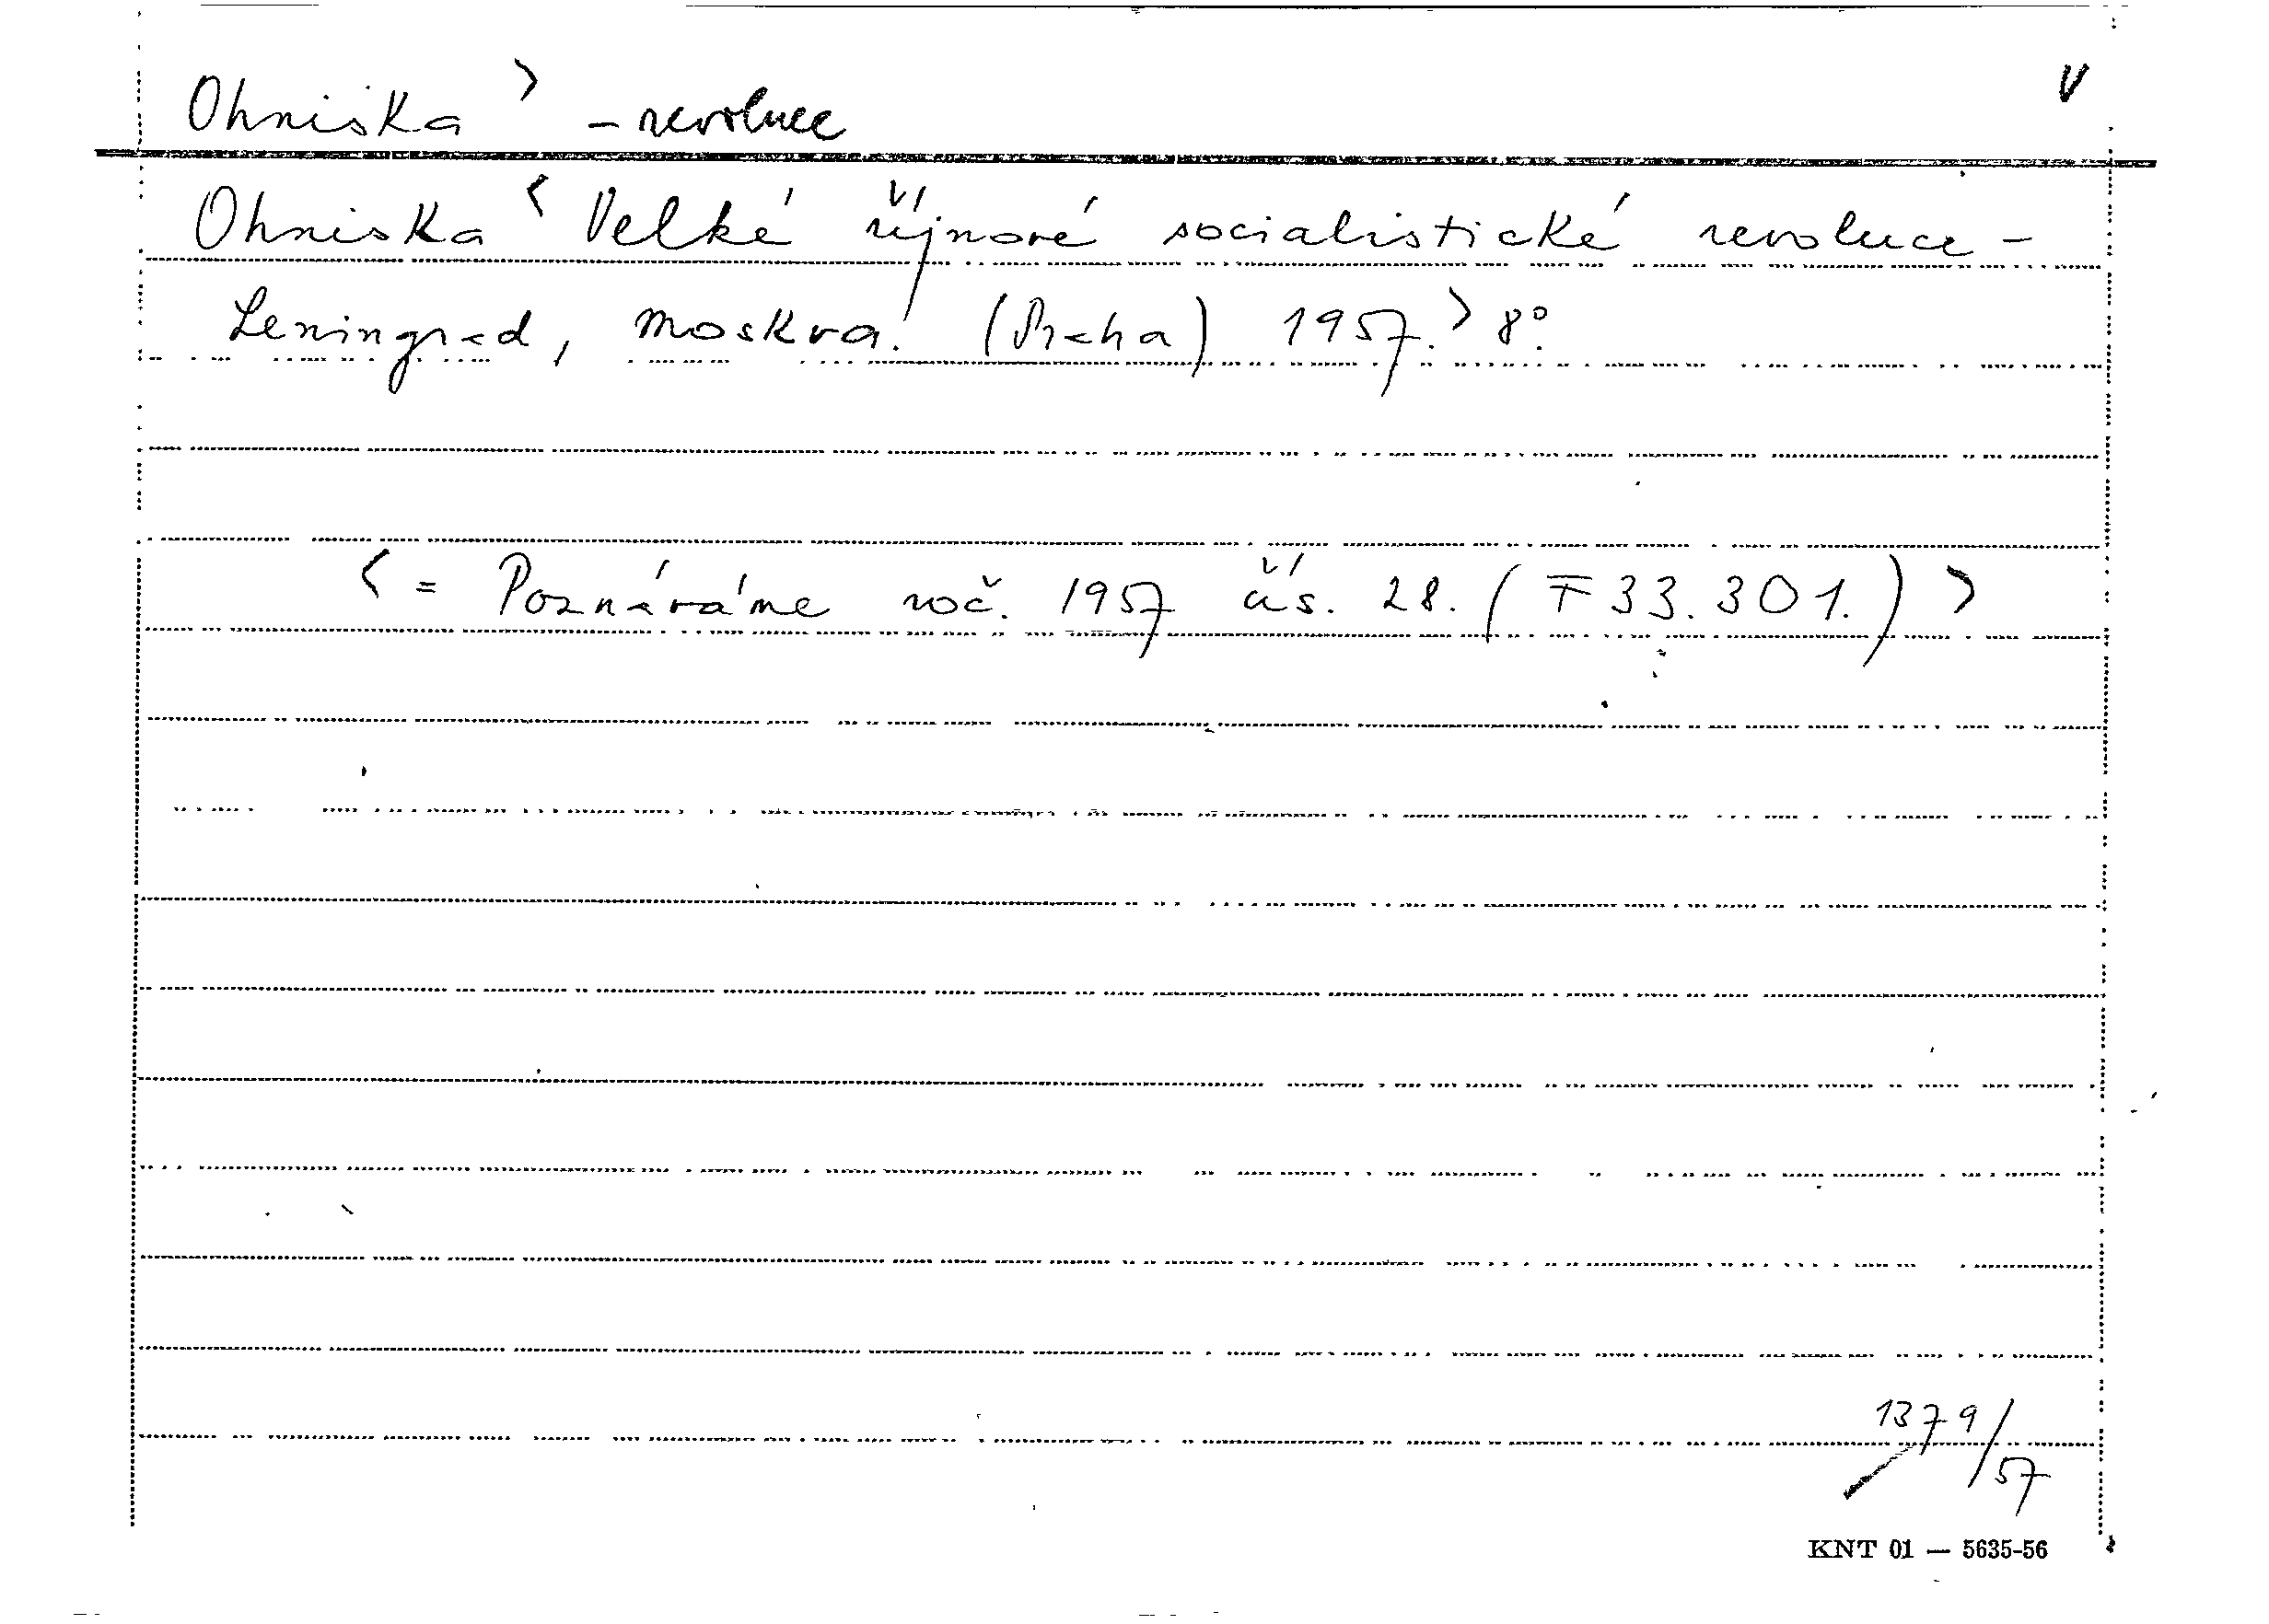 Ohniska > - revoluce V
Ohniska < Velké říjnové socialistické revoluce -
Leningrad, Moskva. (Praha) 1957. > 8°.
< = Poznáváme roč. 1957 čís. 28. (F 33.301.) >
1379/57
KNT 01 — 5635-56